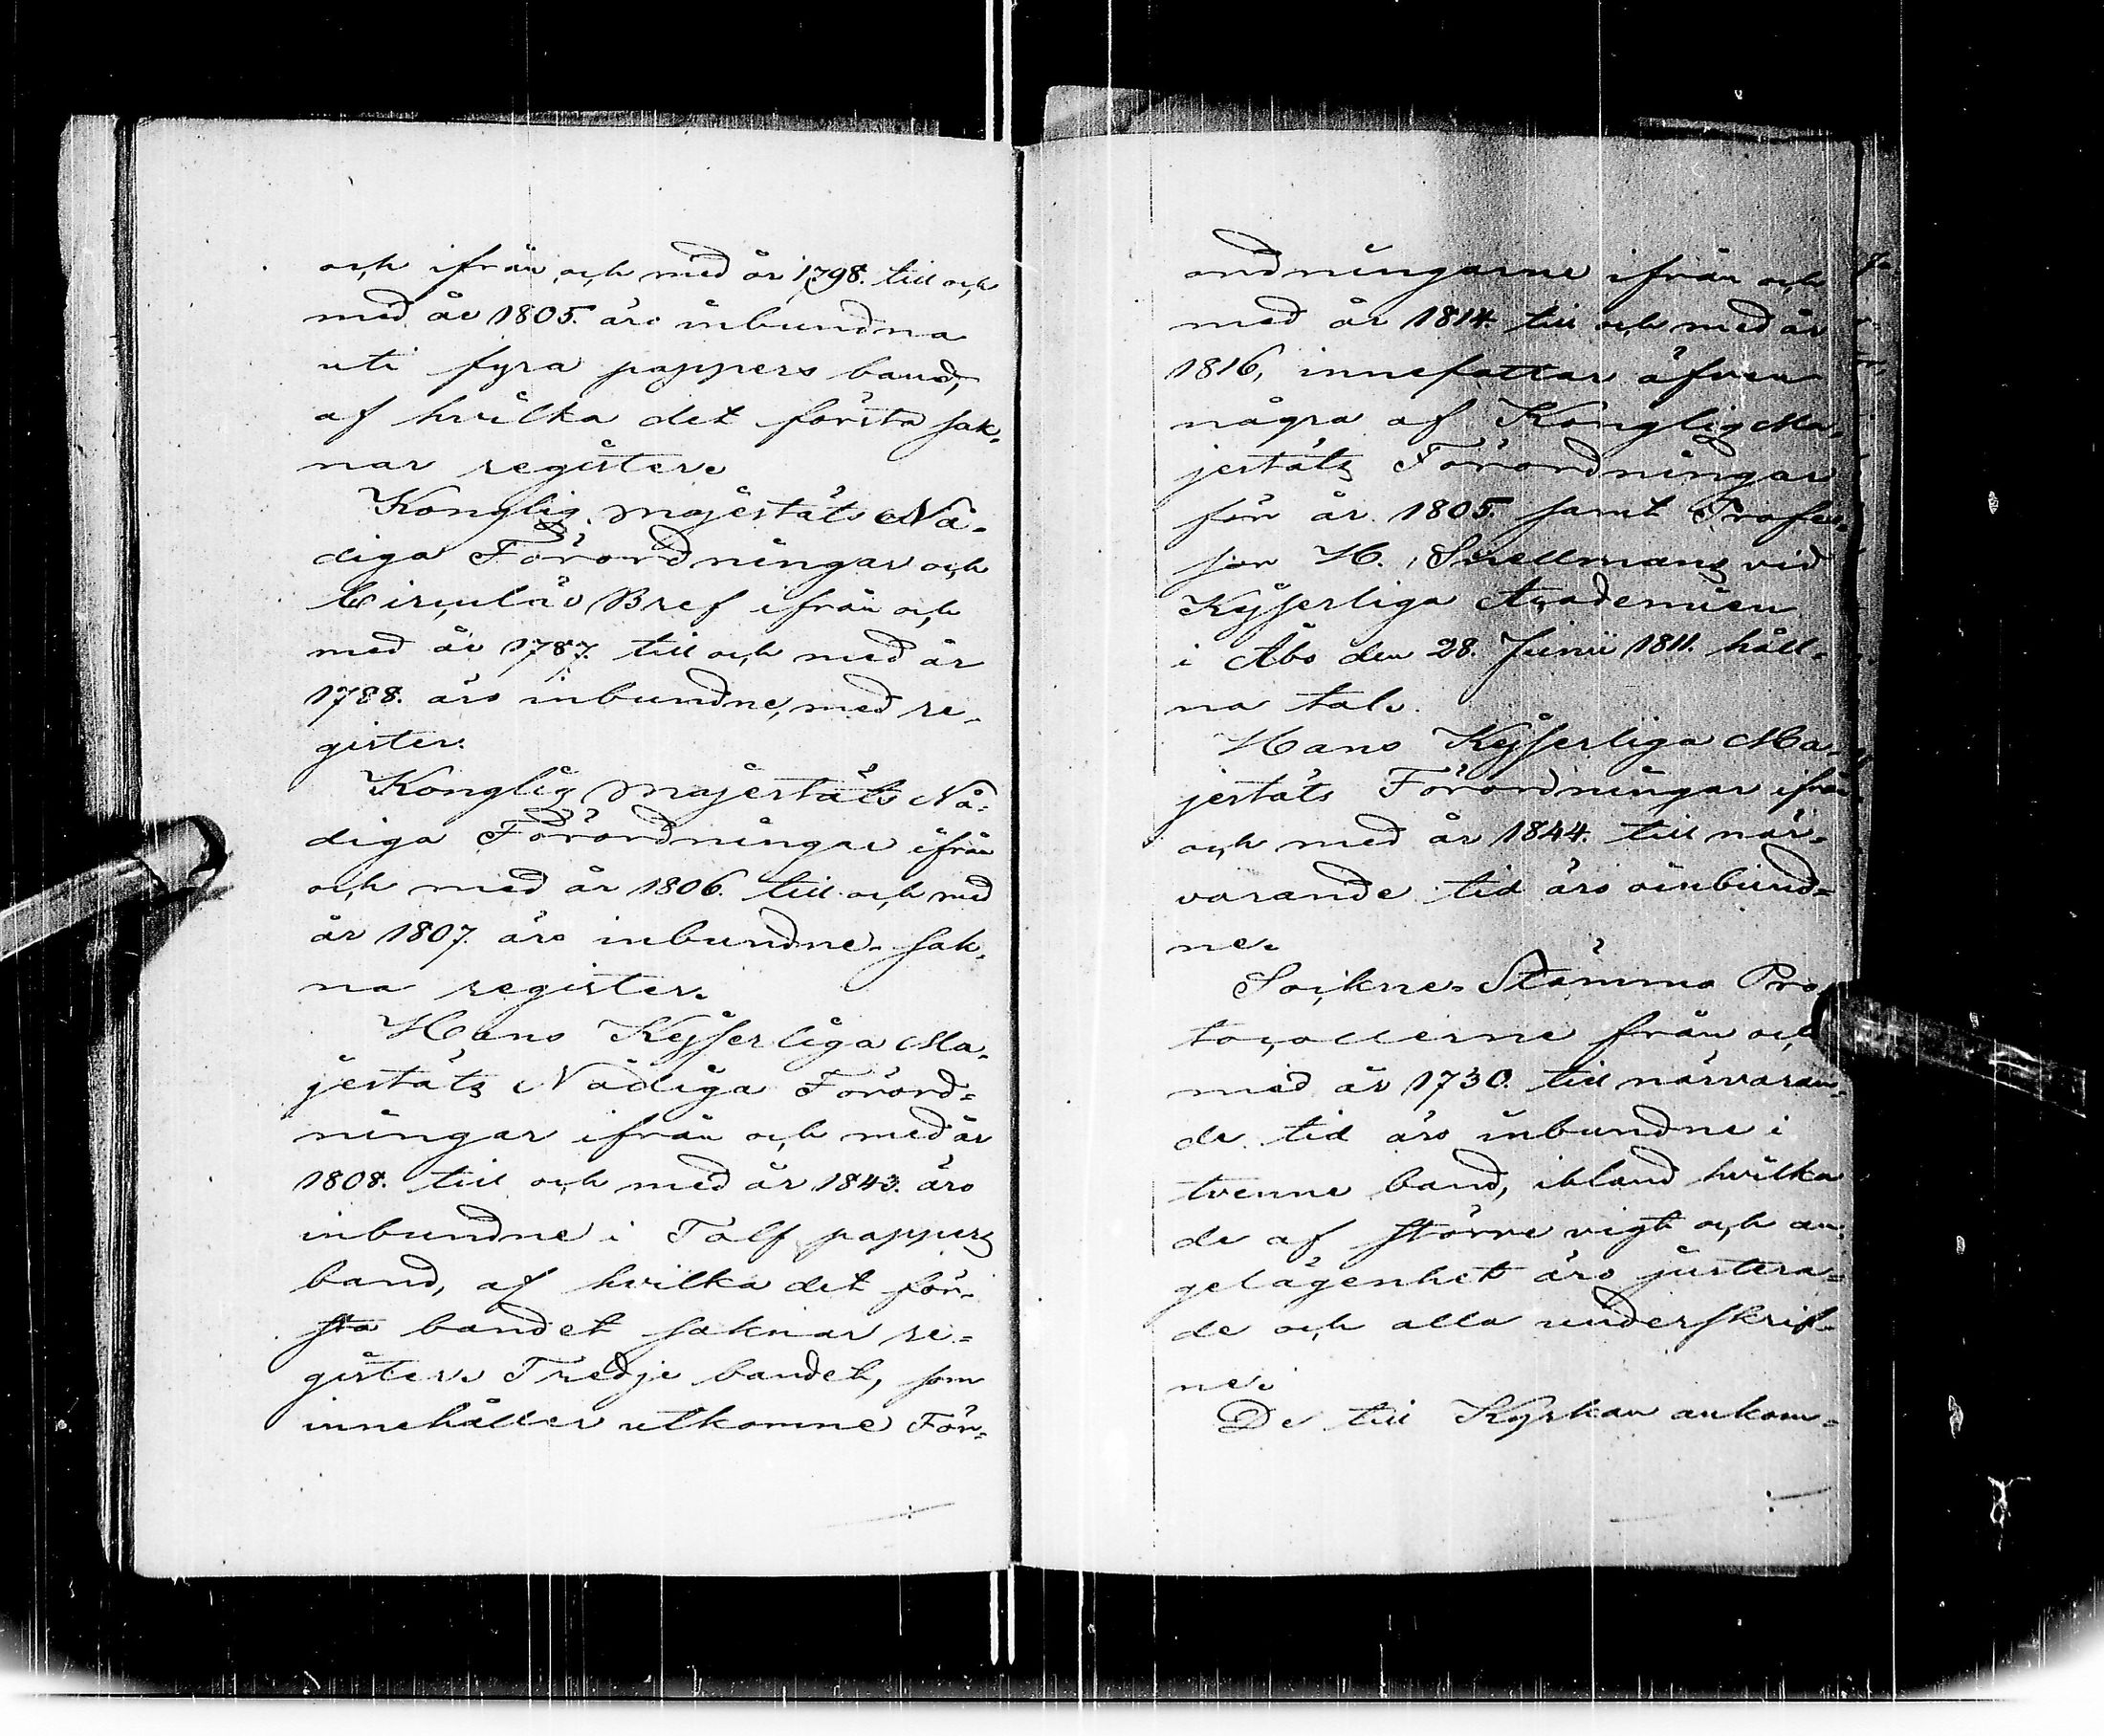 och ifrån och med år 1798. till och
med år 1805. äro inbundna
uti fyra pappers band,
af hvilka det första sak-
nar register.
Konglig Majestäts Nå-
diga Förordningar och
Circulär Bref ifrån och
med år 1787. till och med år
1788. äro inbundne, med re-
gister.
Konglig Majestäts Nå-
diga Förordningar ifrån
och med år 1806. till och med
år 1807. äro inbundne. sak-
na register.
Hans Kejserliga Ma-
jestäts Nådiga Förord-
ningar ifrån och med år
1808. till och med år 1843. äro
inbundne i Tolf pappers
band, af hvilka det för-
sta bandet saknar re-
gister. Tredje bandet, som
innehåller utkomne För-
ordningarne ifrån och
med år 1814. till och med år
1816, innefattar äfven
några af Konglig Ma-
jestäts Förordningar
för år 1805. samt Profes-
sor H. Snellmans vid
Kejserliga Academien
i Åbo den 28. Junii 1811. håll-
na tal.
Hans Kejserliga Ma-
jestäts Förordningar ifrån
och med år 1844. till när-
varande tid äro oinbund-
ne.
Sockne-Stämmo Pro-
tocollerne från och
med år 1730. till närvaran-
de tid äro inbundne i
tvenne band, ibland hvilka
de af större vigt och an-
gelägenhet äro justera-
de och alla underskrif-
ne.
De till Kyrkan ankom-